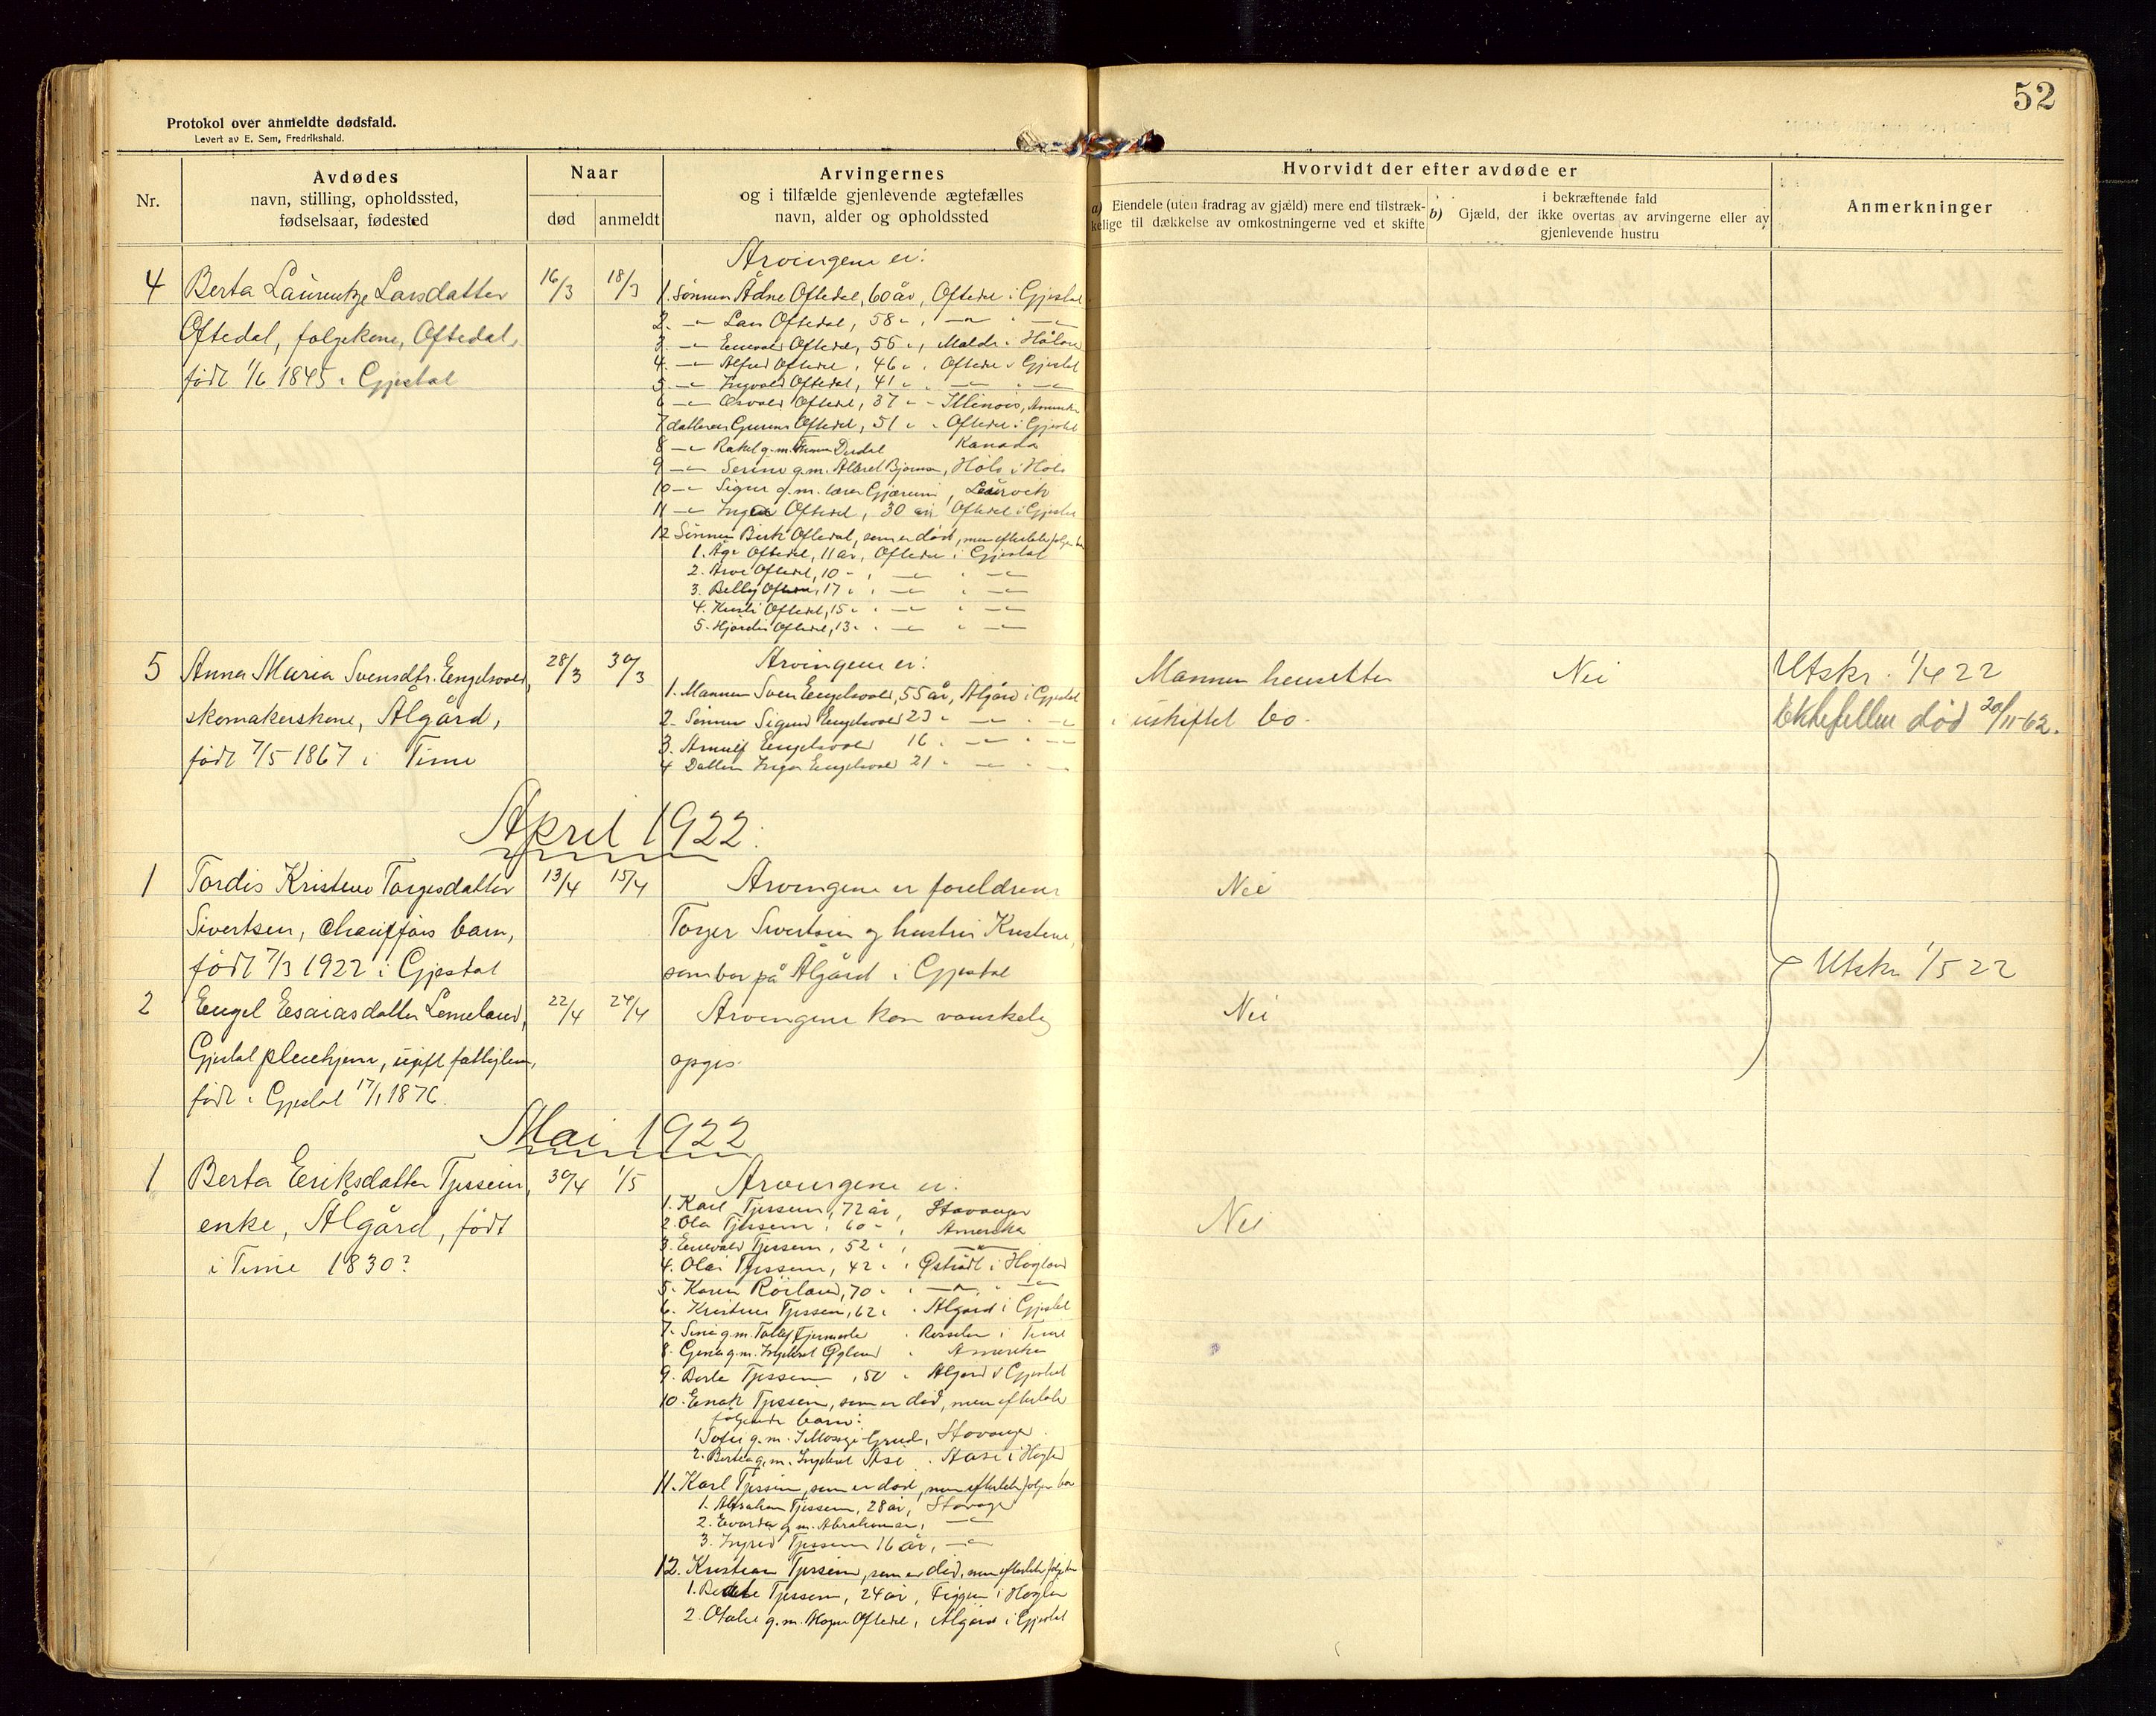 52
Protokol over anmeldte dødsfald.
Levert av E. Sem, Fredrikshald.
Nr.
Avdødes
navn, stilling, opholdssted,
fødselsaar, fødested
Naar
død
anmeldt
Arvingernes
og i tilfælde gjenlevende ægtefælles
navn, alder og opholdssted
Hvorvidt der efter avdøde er
a) Eiendele (uten fradrag av gjæld) mere end tilstræk-
kelige til dækkelse av omkostningerne ved et skifte
i bekræftende fald
b) Gjæld, der ikke overtas av arvingerne eller av
gjenlevende hustru
Anmerkninger
4
Berta Laurentze Larsdatter
Oftedal, følgekone, Oftedal,
født 1/6 1845 i Gjestal
16/3
18/3
Arvingene er:
1. Sønnen Ådne Oftedal, 60 år, Oftedal i Gjestal
2. -"- Lars Oftedal, 58 " , -"- " -"-
3. -"- Enevald Oftedal, 56 ", Malde i Håland
4. -"- Alfred Oftedal, 46 " , Oftedal i Gjestal
5. -"- Ingvald Oftedal, 41 " , -"- " -"-
6 -"- Osvald Oftedal, 37 " - Illinois, Amerika
7 datteren Gurine Oftedal, 51 " " Oftedal i Gjestal
8 -"- Rakel g.m. Dirdal Kanada
9 -"- Serine g.m. Bjørnsen, Høle i Høle
10 -"- Signe g.m. lærer Gjærum, Laurvik
11 -"- Inga Oftedal, 30 år, Oftedal i Gjestal
12 Sønnen Oftedal, som er død, men efterlater følgende barn
1. Åge Oftedal, 11 år, Oftedal i Gjestal
2. Arve Oftedal, 10 - , -"- " -"-
3. Belly Oftedal, 17 " , -"- " -"-
4. Oftedal, 15 " , -"- " -"-
5. Hjørdis Oftedal, 13 " , -"- " -"-
5
Anna Maria Svensdtr. Engelsvold,
skomakerskone, Ålgård,
født 7/5 1867 i Time
28/3
30/3
Arvingene er:
1. Mannen Sven Engelsvold, 55 år, Ålgård i Gjestal
2. Sønnen Sigurd Engelsvold 23 " -"- " -"-
3. Arnulf Engelsvold 16 " -"- " -"-
4 Datteren Inga Engelsvold 21 " -"- " -"-
Mannen hensitter
i uskiftet bo.
Nei
Utskr. 1/4 22
Ektefellen død 20/11-62.
April 1922.
1
Tordis Kristene Torgesdatter
Sivertsen, chaufførs barn,
født 7/3 1922 i Gjestal
13/4
15/4
Arvingene er foreldrene
Torger Sivertsen og hustru Kristene,
som bor på Ålgård i Gjestal
Nei
Utskr 1/5 22
2
Engel Esaiasdatter Lemeland,
Gjestal pleiehjem, ugift fattiglem,
født i Gjestal 17/1 1876.
22/4
24/4
Arvingene kan vanskelig
opgis.
Nei
Mai 1922
1
Berta Eriksdatter Tjessem,
enke, Ålgård, født
i Time 1830?
30/4
1/5
Arvingene er:
1. Karl Tjessem, 72 år, Stavanger
2. Ola Tjessem, 60 - , Amerika
3. Enevald Tjessem, 52 " , -"-
4. Olai Tjessem, 42 " , Østrådt i Hogland
5. Karen Røiland, 70 " , -"- " -"-
6. Kristine Tjessem, 62 " " Ålgård i Gjestal
7. Sina g.m. Tollef Fjermestad " i Time
8. Gina g.m. Ingebret Øgland " Amerika
9. Berta Tjessem, 50 " Ålgård i Gjestal
10. Enok Tjessem, som er død, men efterlater
følgende barn:
1. Sofie g.m. Grude, Stavanger
2. Berta g.m. Ingebret Åse . Aase i Hogland
11. Karl Tjessem, som er død, men efterlater følgende barn
1. Abraham Tjessem, 28 år, Stavanger
2. Evarda g.m. Abrahamsen, -"-
3. Ingrid Tjessem 16 år, -"-
12. Kristian Tjessem, som er død, men efterlater følgende barn
1. Tjessem, 24 år, Figgen i Hogland
2. Otalie g.m. Oftedal, Ålgård i Gjestal
Nei